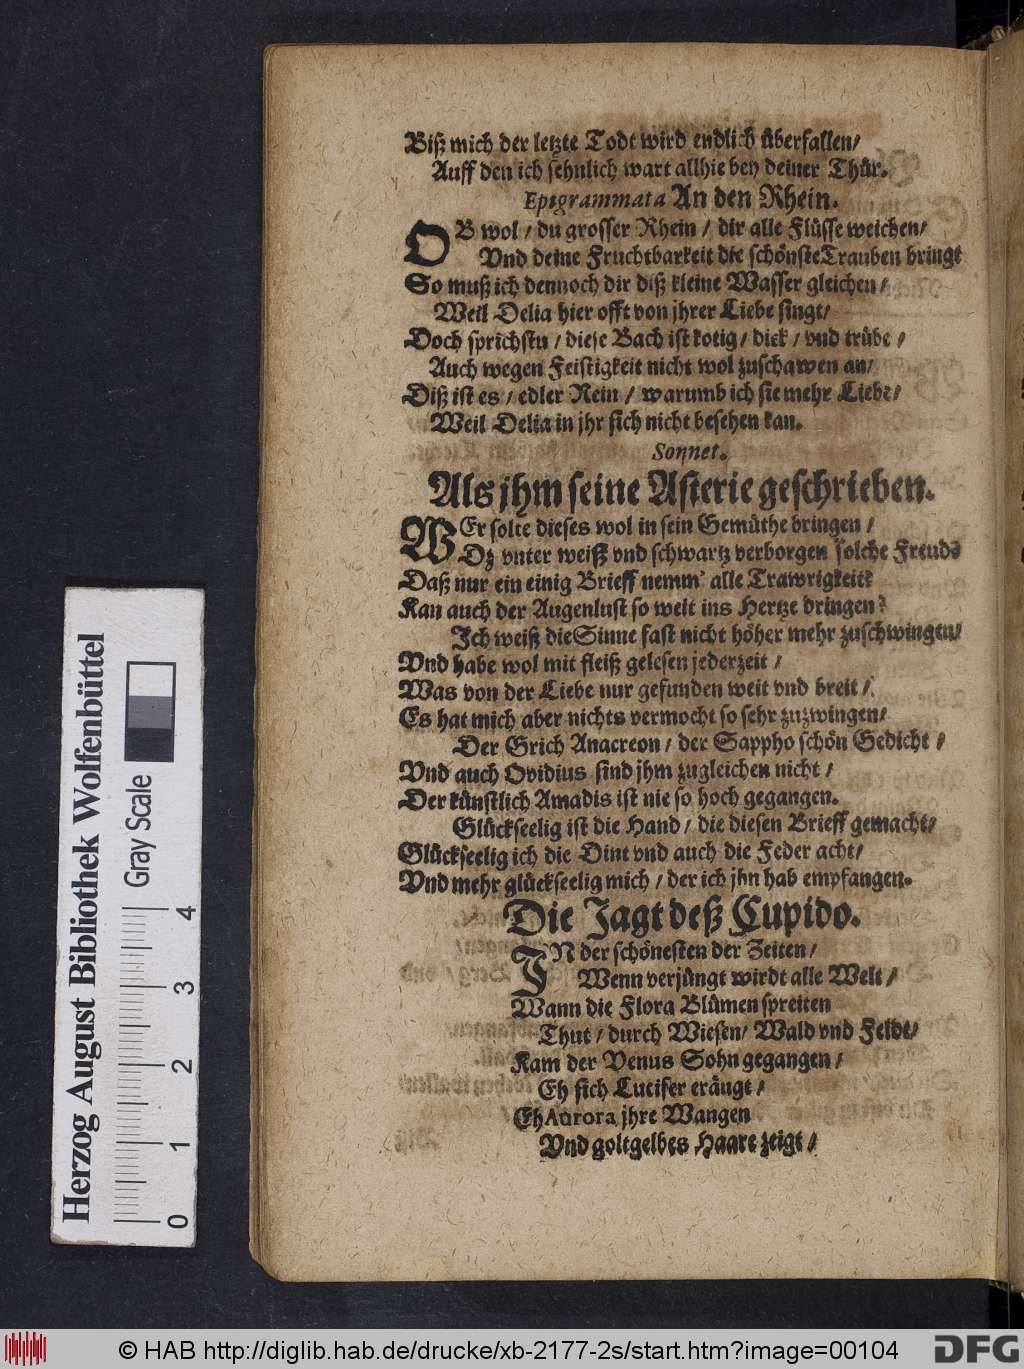 Biß mich der letzte Todt wird endlich überfallen/
Auff den ich sehnlich wart allhie bey deiner Thür.
Epigrammata An den Rhein.
OB wol / du grosser Rhein / dir alle Flüsse weichen/
Vnd deine Fruchtbarkeit die schönste Trauben bringt
So muß ich dennoch dir diß kleine Wasser gleichen/
Weil Delia hier offt von jhrer Liebe singt/
Doch sprichstu / diese Bach ist kotig / dick / vnd trübe /
Auch wegen Feistigkeit nicht wol zuschawen an/
Diß ist es / edler Rein / warumb ich sie mehr Liebe/
Weil Delia in jhr sich nicht besehen kan.
Sonnet.
Als jhm seine Asterie geschrieben.
WEr solte dieses wol in sein Gemüthe bringen /
Dz vnter weiß vnd schwartz verborgen solche Freud?
Daß nur ein einig Brieff nemm' alle Trawrigkeit?
Kan auch der Augenlust so weit ins Hertze dringen?
Ich weiß die Sinne fast nicht höher mehr zuschwingen/
Vnd habe wol mit fleiß gelesen jederzeit /
Was von der Liebe nur gefunden weit vnd breit /
Es hat mich aber nichts vermocht so sehr zuzwingen/
Der Grich Anacreon / der Sappho schön Gedicht /
Vnd auch Ovidius sind jhm zugleichen nicht /
Der künstlich Amadis ist nie so hoch gegangen.
Glückseelig ist die Hand / die diesen Brieff gemacht/
Glückseelig ich die Dint vnd auch die Feder acht/
Vnd mehr glückseelig mich / der ich jhn hab empfangen.
Die Jagt deß Cupido.
IN der schönesten der Zeiten /
Wenn verjüngt wirdt alle Welt /
Wann die Flora Blümen spreiten
Thut / durch Wiesen / Wald vnd Feldt/
Kam der Venus Sohn gegangen /
Eh sich Lucifer eräugt /
Eh Aurora jhre Wangen
Vnd goltgelbes Haare zeigt /
Herzog August Bibliothek Wolfenbüttel
Gray Scale
0 1 2 3 4
© HAB http://diglib.hab.de/drucke/xb-2177-2s/start.htm?image=00104
DFG